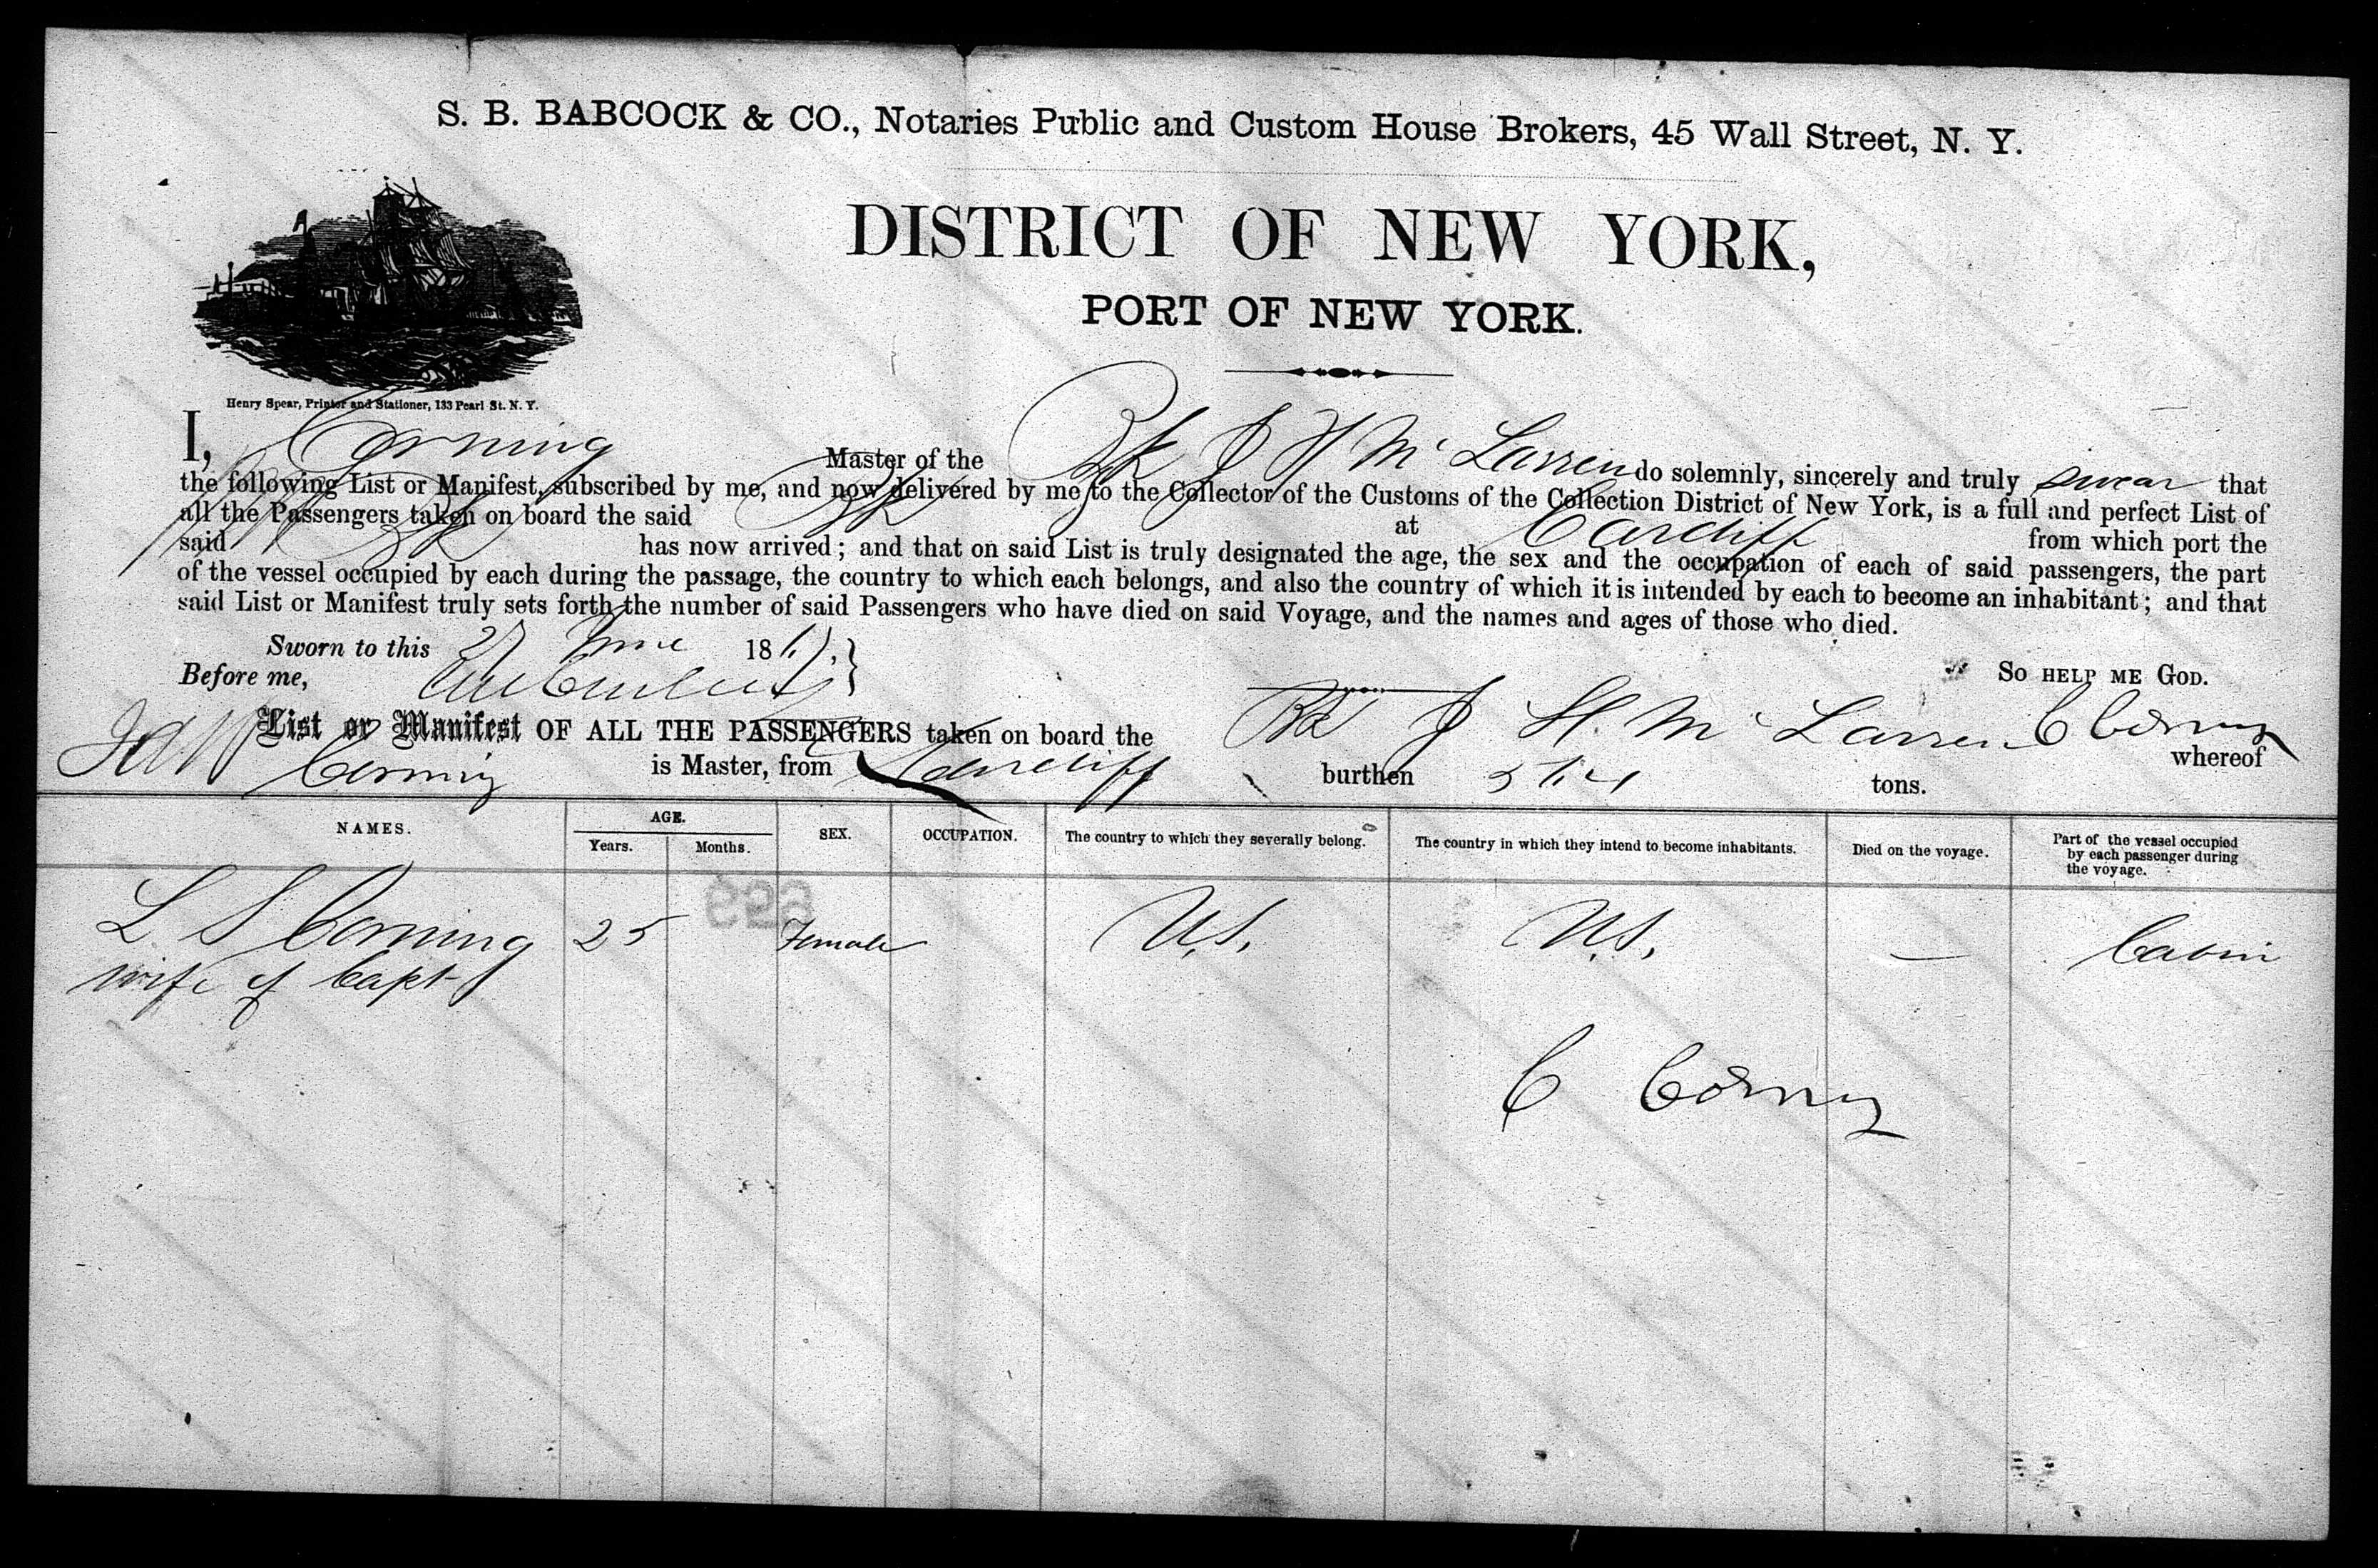 S. B. BABCOCK & CO., Notaries Public and Custom House Brokers, 45 Wall Street, N. Y.
DISTRICT OF NEW YORK,
PORT OF NEW YORK.
Henry Spear, Printer and Stationer, 133 Pearl St. N. Y.
I, Corning Master of the Bk J H McLarren do solemnly, sincerely and truly swear that
the following List or Manifest, subscribed by me, and now delivered by me to the Collector of the Customs of the Collection District of New York, is a full and perfect List of
all the Passengers taken on board the said Bk at Cardiff from which port the
said Bk has now arrived; and that on said List is truly designated the age, the sex and the occupation of each of said passengers, the part
of the vessel occupied by each during the passage, the country to which each belongs, and also the country of which it is intended by each to become an inhabitant; and that
said List or Manifest truly sets forth the number of said Passengers who have died on said Voyage, and the names and ages of those who died.
Sworn to this 27 June 186
Before me,
SO HELP ME GOD.
C Corning
List or Manifest OF ALL THE PASSENGERS taken on board the Bk J H. McLarren whereof
Corning is Master, from Cardiff burthen tons.
NAMES. AGE. SEX. OCCUPATION. The country to which they severally belong. The country in which they intend to become inhabitants. Died on the voyage. Part of the vessel occupied by each passenger during the voyage.
Years. Months.
L S Corning 25 Female U.S. U.S. — Cabin
wife of Capt
C Corning